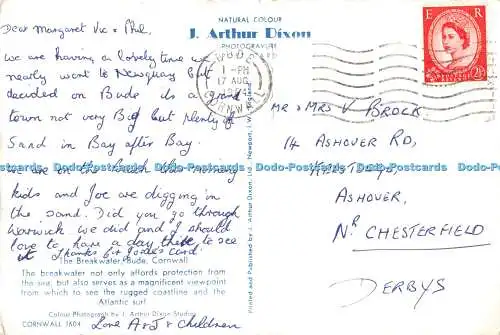 Dear Margaret Vic + Phil.
we are having a lovely time we
nearly went to Newquay but
decided on Bude its a grand
town not very Big but plenty of
Sand in Bay after Bay.
we are on the beach this morning
kids and Joe are digging in
the sand. Did you go through
Warwick we did and I should
love to have a day there to see
it Thanks for card.
Love A+J + Children
The Breakwater, Bude, Cornwall
The breakwater not only affords protection from the
sea, but also serves as a magnificent viewpoint
from which to see the rugged coastline and the
Atlantic surf.
Colour Photograph by J. Arthur Dixon Studios
CORNWALL
NATURAL COLOUR
J. Arthur Dixon
PHOTOGRAVURE
Printed and Published by J. Arthur Dixon, Ltd., Newport, I.W., England
BUDE
1 - PM
17 AUG
CORNWALL
E R
2½D
MR + MRS V BROCK
14 ASHOVER RD,
ASHOVER,
NR CHESTERFIELD
DERBYS
Dodo-Postcards Dodo-Postcards Dodo-Postcards Dodo-Postcards
Dodo-Postcards Dodo-Postcards Dodo-Postcards Dodo-Postcards